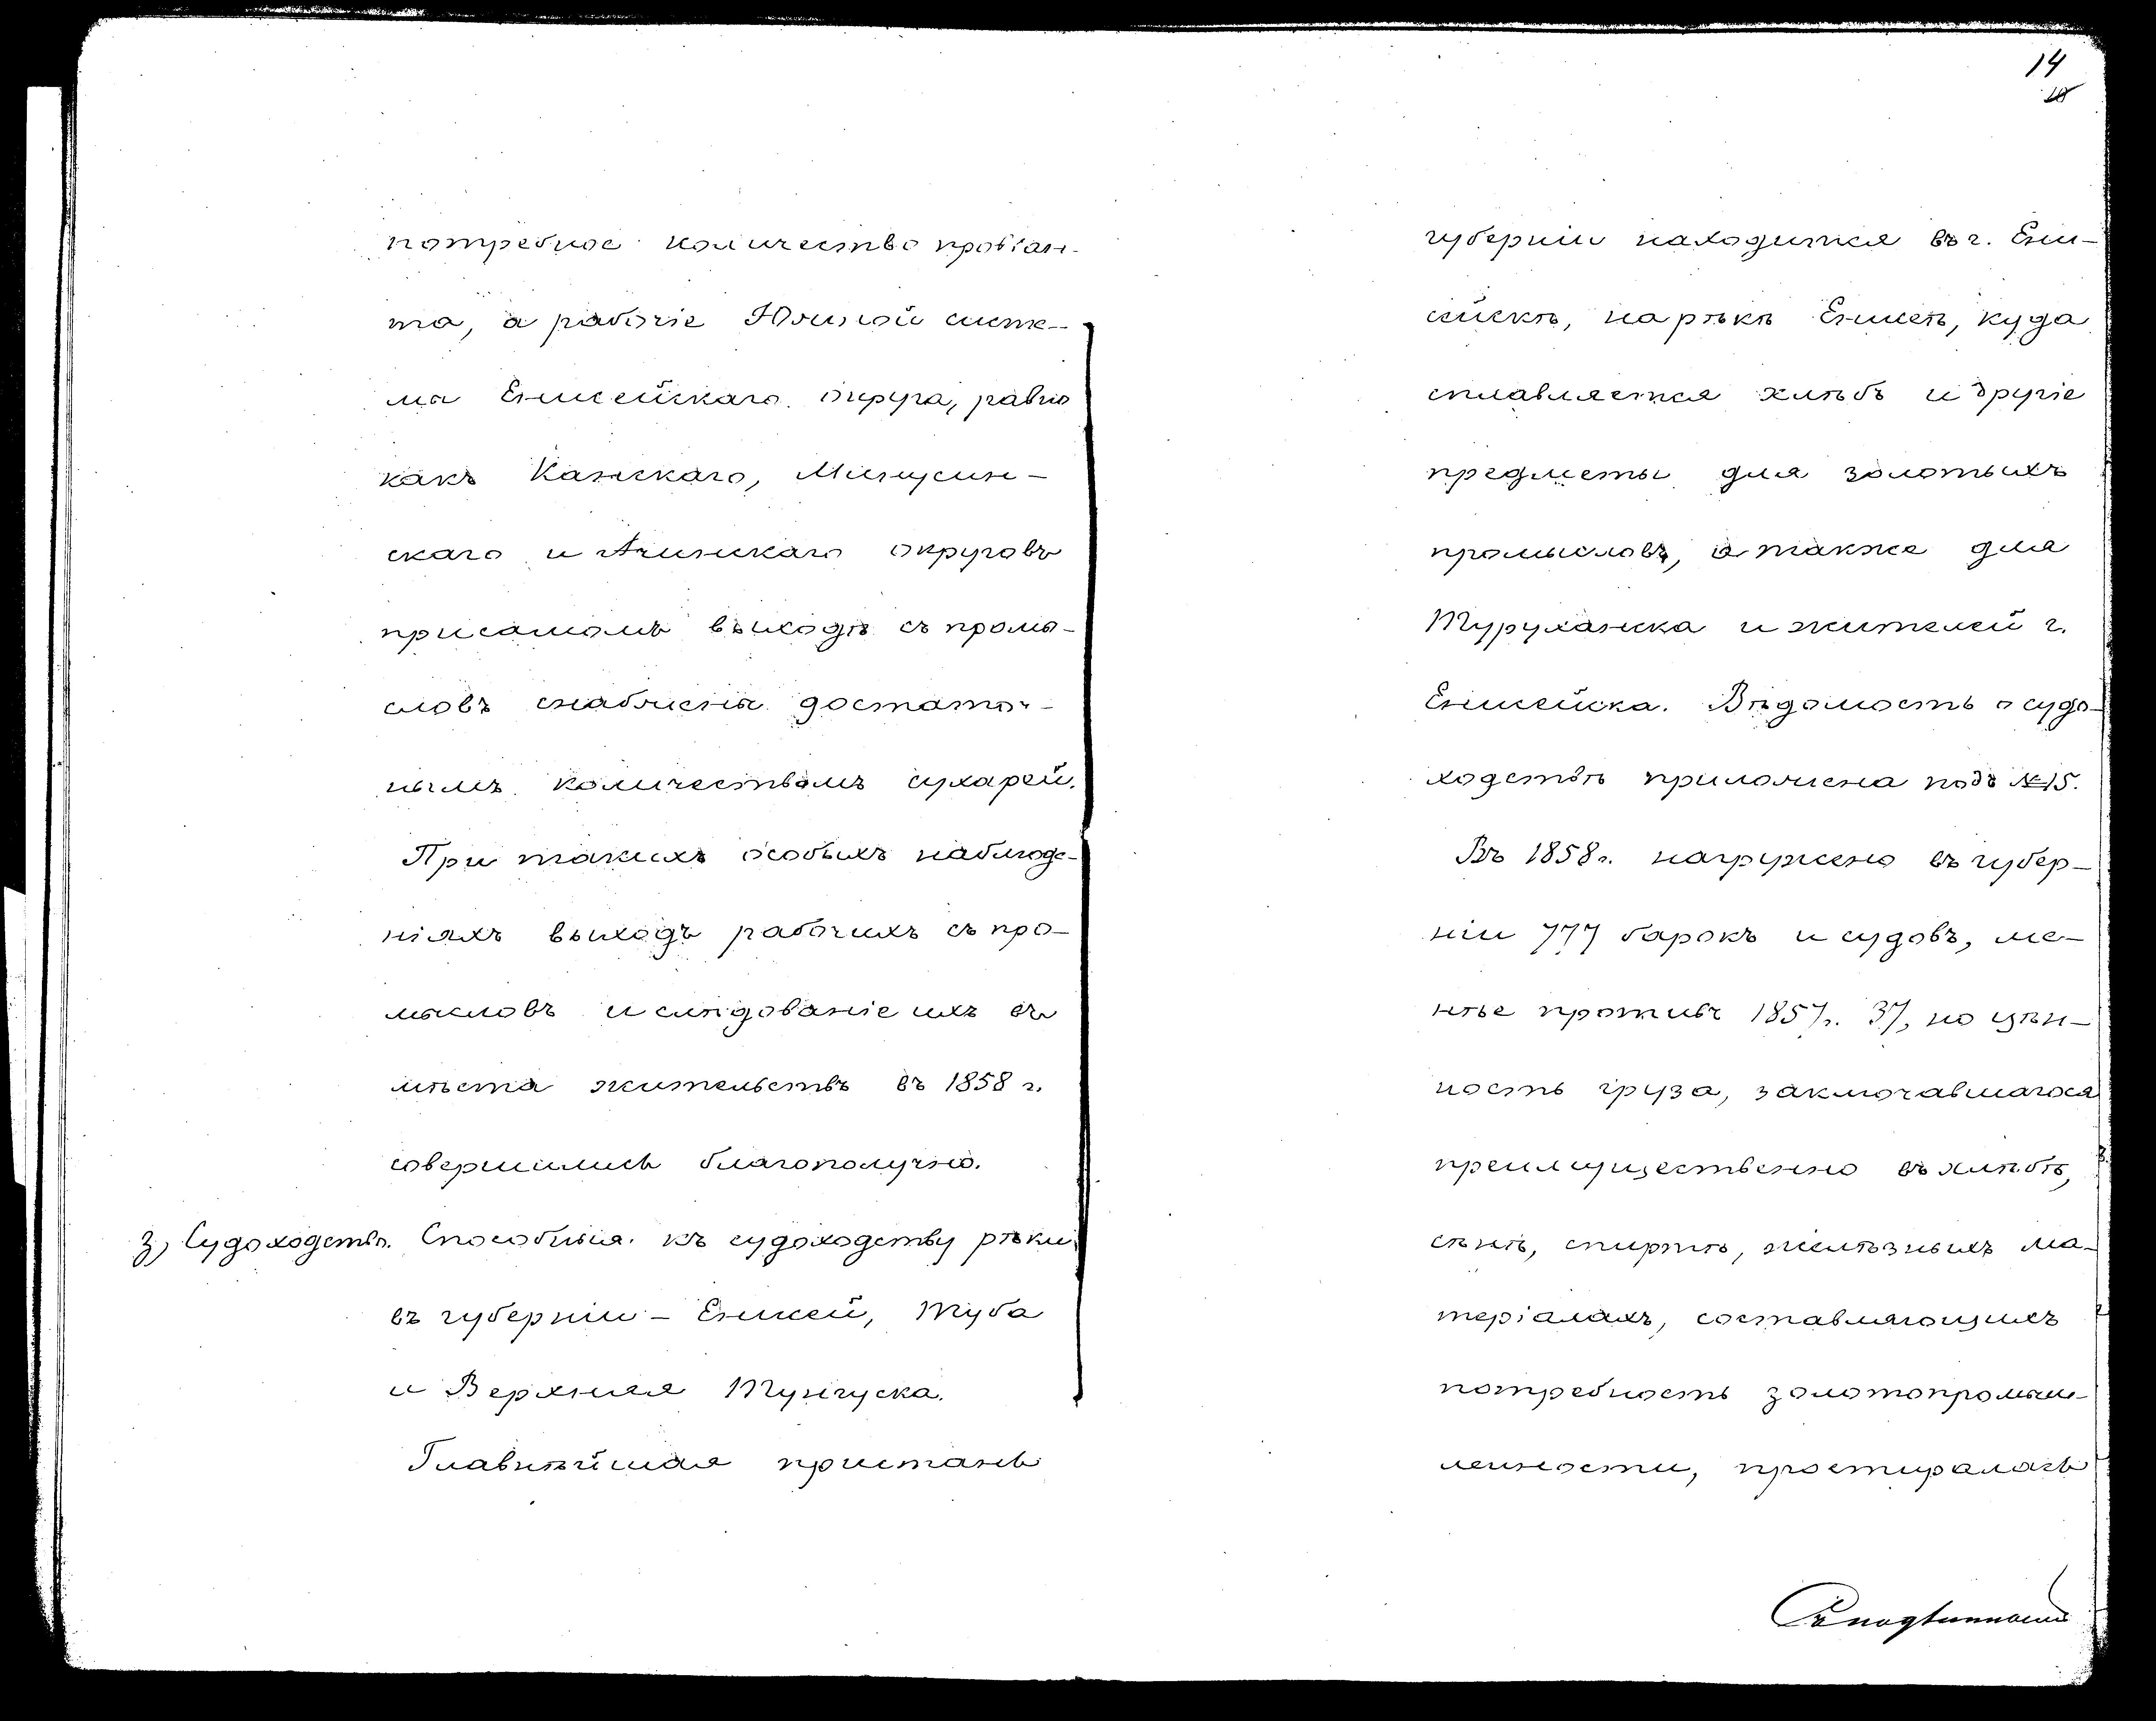 потребное количество провіан-
та, а рабочіе Южной систе-
мы Енисейскаго округа, равно
какъ Канскаго, Минусин-
скаго и Ачинскаго округовъ
при самомъ выходѣ съ промы-
словъ снабжены достаточ-
нымъ количествомъ сухарей.
При такихъ особыхъ наблюде-
ніяхъ выходъ рабочихъ съ про-
мысловъ и слѣдованіе ихъ въ
мѣста жительствъ въ 1858 г.
совершились благополучно.
з) Судоходство. Способныя къ судоходству рѣки
въ губерніи - Енисей, Туба
и Верхняя Тунгуска.
Главнѣйшая пристань
14
10
губерніи находится въ г. Ени-
сейскѣ, на рѣкѣ Енисеѣ, куда
сплавляется хлѣбъ и другіе
предметы для золотыхъ
промысловъ, а также для
Туруханска и жителей г.
Енисейска. Вѣдомость о судо-
ходствѣ приложена подъ № 15.
Въ 1858 г. нагружено въ губер-
ніи 777 барокъ и судовъ, ме-
нѣе противъ 1857 г. 37, но цѣн-
ность груза, заключавшагося
преимущественно въ хлѣбѣ,
сѣнѣ, спиртѣ, желѣзныхъ ма-
теріалахъ, составляющихъ
потребность золотопромыш-
ленности, простиралась
Съ подлиннымъ